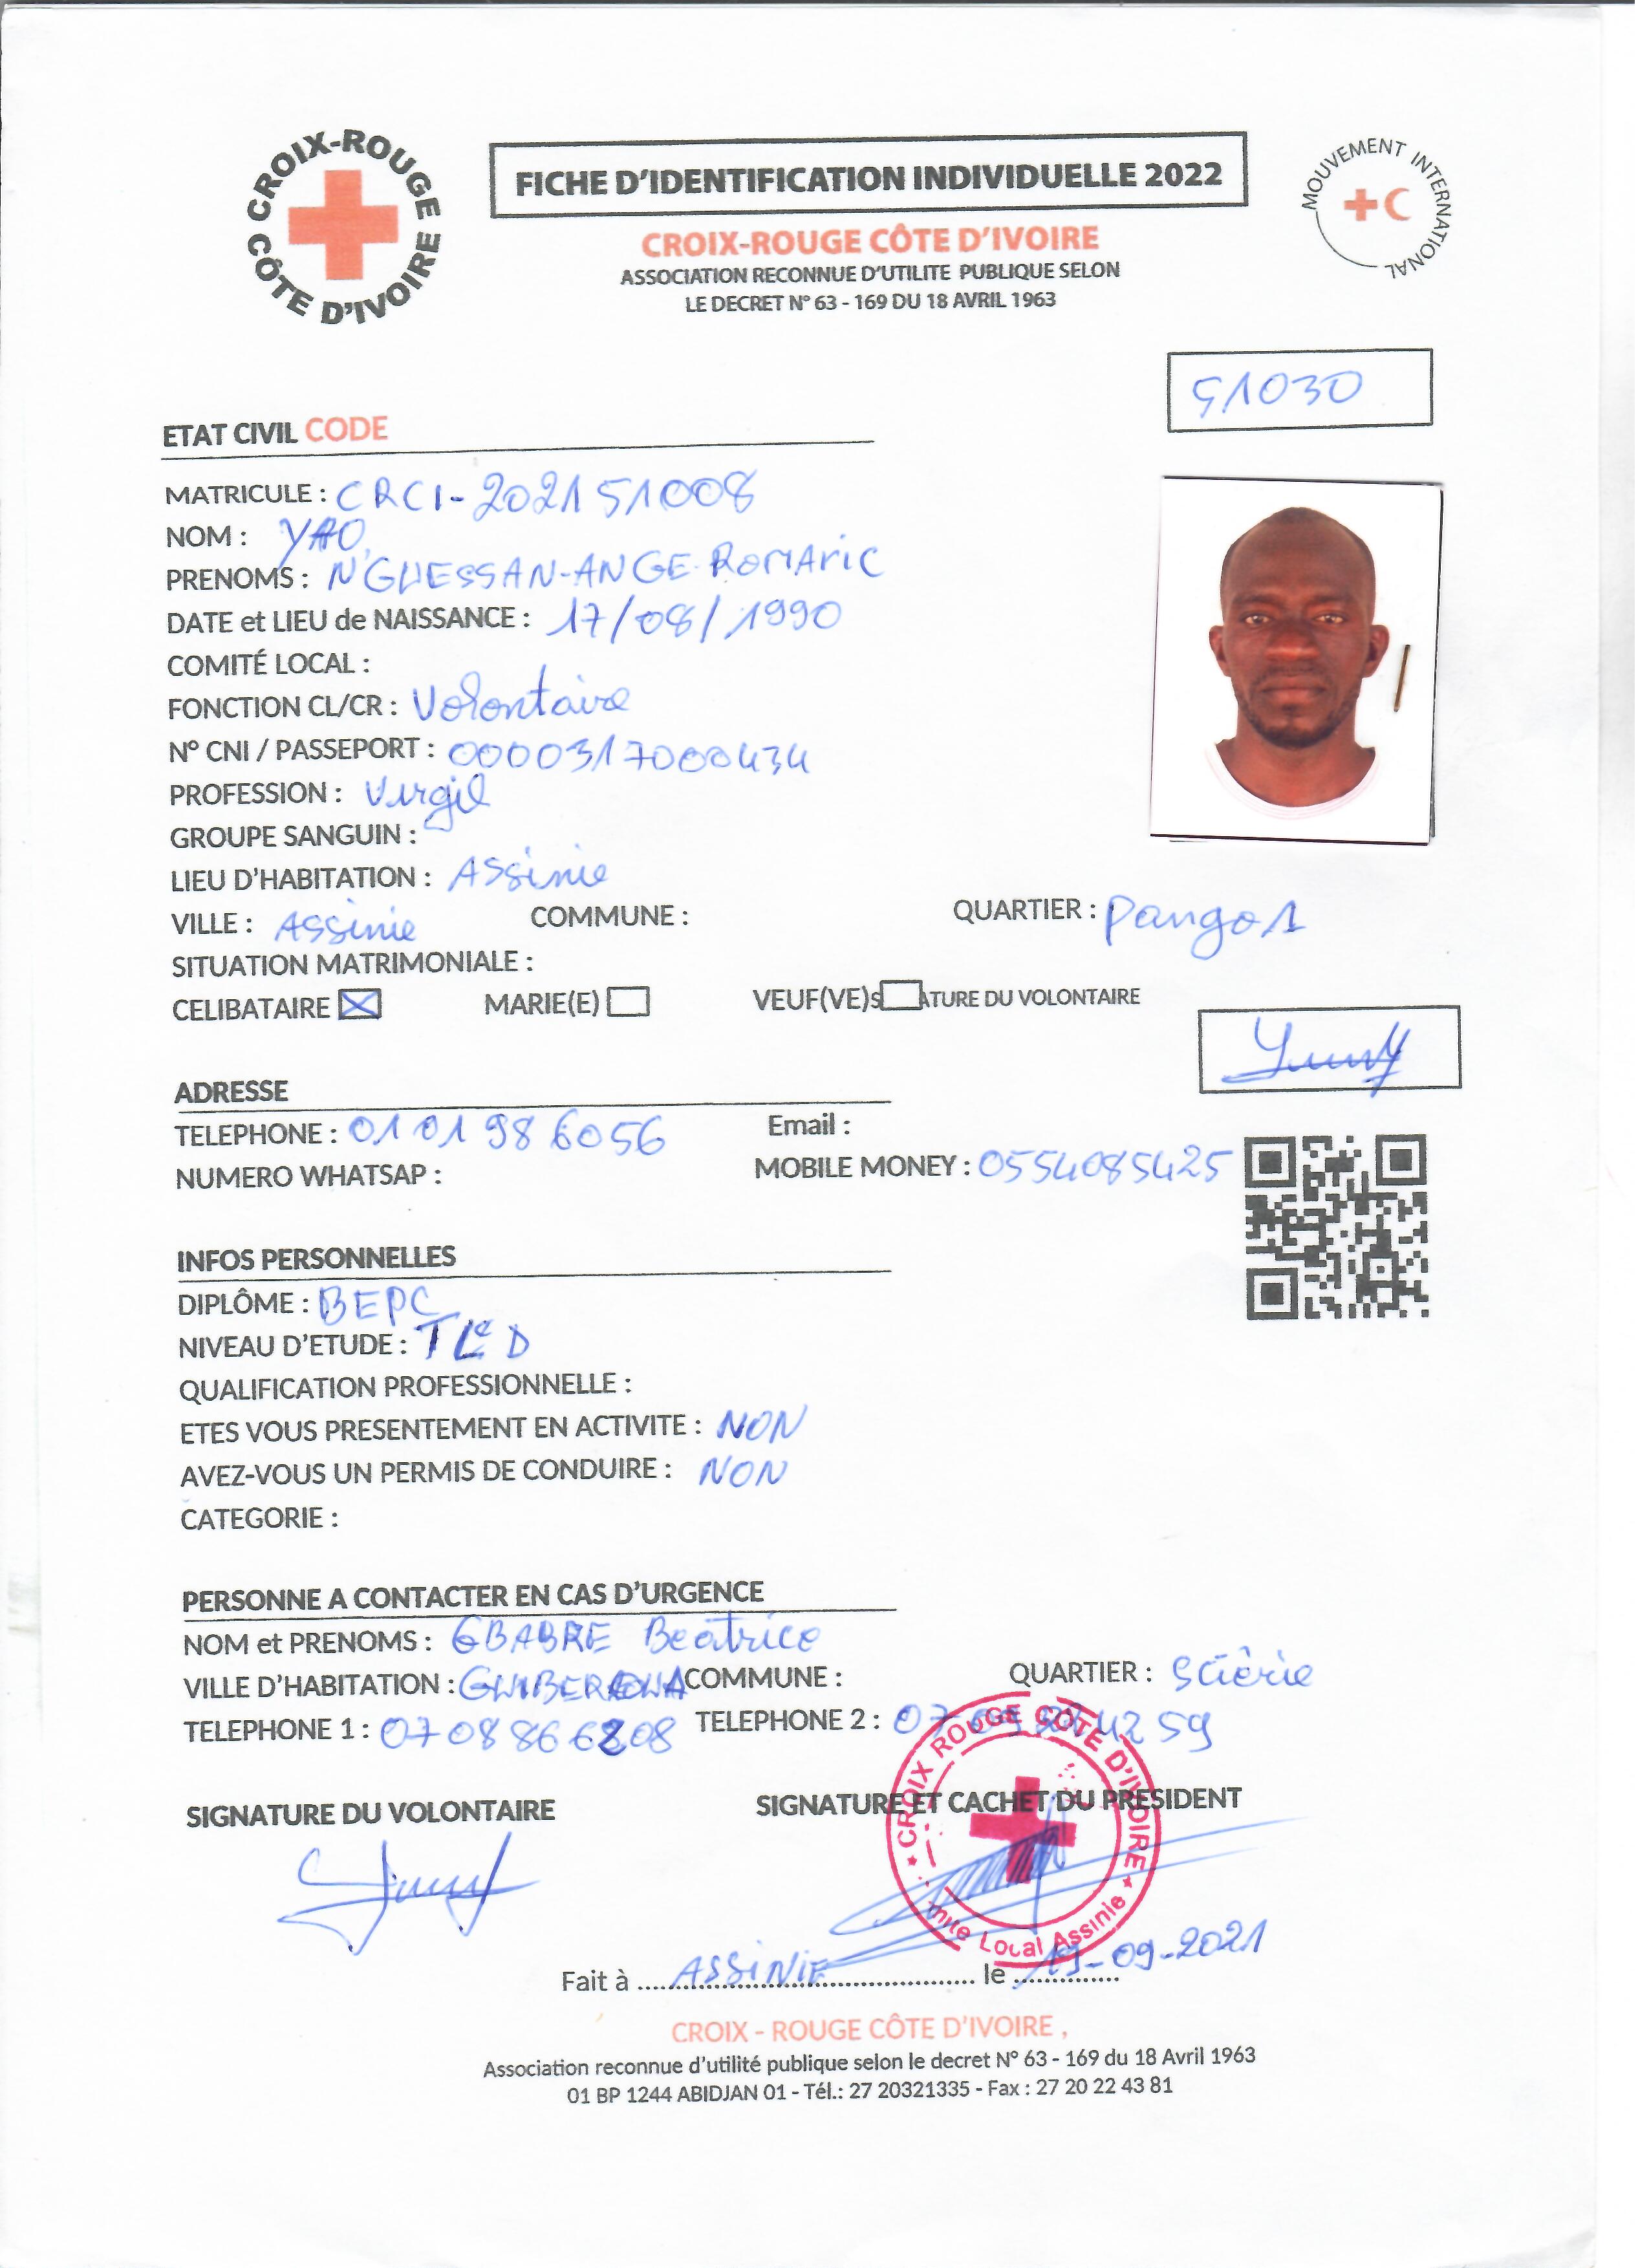 CROIX-ROUGE CÔTE D'IVOIRE
FICHE D'IDENTIFICATION INDIVIDUELLE 2022
MOUVEMENT INTERNATIONAL
CROIX-ROUGE CÔTE D'IVOIRE
ASSOCIATION RECONNUE D'UTILITE PUBLIQUE SELON
LE DECRET N° 63 - 169 DU 18 AVRIL 1963
51030
ETAT CIVIL CODE
MATRICULE : CRCI-202151008
NOM : YAO
PRENOMS : N'GUESSAN-ANGE-ROMARIC
DATE et LIEU de NAISSANCE : 17/08/1990
COMITÉ LOCAL :
FONCTION CL/CR : Volontaire
N° CNI / PASSEPORT : 0000317000434
PROFESSION : Virgil
GROUPE SANGUIN :
LIEU D'HABITATION : Assinie
VILLE : Assinie COMMUNE : QUARTIER : Pango1
SITUATION MATRIMONIALE :
CELIBATAIRE MARIE(E) VEUF(VE)S ATURE DU VOLONTAIRE
ADRESSE
TELEPHONE : 0101986056 Email :
NUMERO WHATSAP : MOBILE MONEY : 0554085425
INFOS PERSONNELLES
DIPLÔME : BEPC
NIVEAU D'ETUDE : TLe D
QUALIFICATION PROFESSIONNELLE :
ETES VOUS PRESENTEMENT EN ACTIVITE : NON
AVEZ-VOUS UN PERMIS DE CONDUIRE : NON
CATEGORIE :
PERSONNE A CONTACTER EN CAS D'URGENCE
NOM et PRENOMS : GBABRE Beatrice
VILLE D'HABITATION : COMMUNE : QUARTIER : Sciêrie
TELEPHONE 1 : 0708866808 TELEPHONE 2 :
SIGNATURE DU VOLONTAIRE SIGNATURE ET CACHET DU PRESIDENT
CROIX ROUGE CÔTE D'IVOIRE
mite Local Assinie
Fait à ASSINIE le 19-09-2021
CROIX - ROUGE CÔTE D'IVOIRE ,
Association reconnue d'utilité publique selon le decret N° 63 - 169 du 18 Avril 1963
01 BP 1244 ABIDJAN 01 - Tél.: 27 20321335 - Fax : 27 20 22 43 81